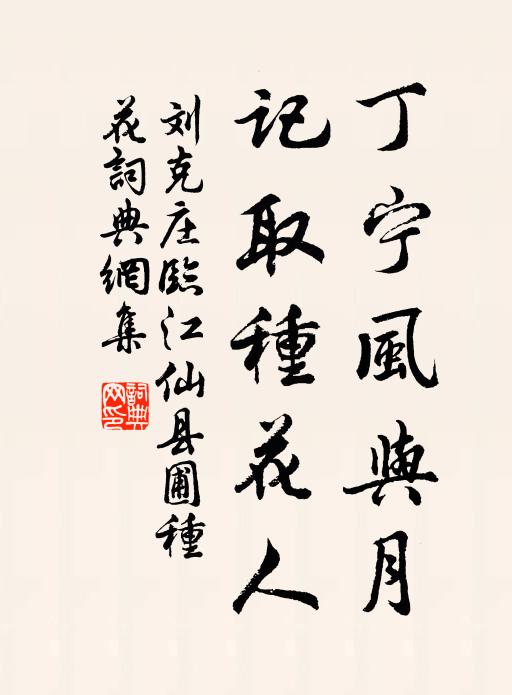 丁宁風與月
記取種花人
刘克庄臨江仙县圃種
花詞典網集
詞典
网印